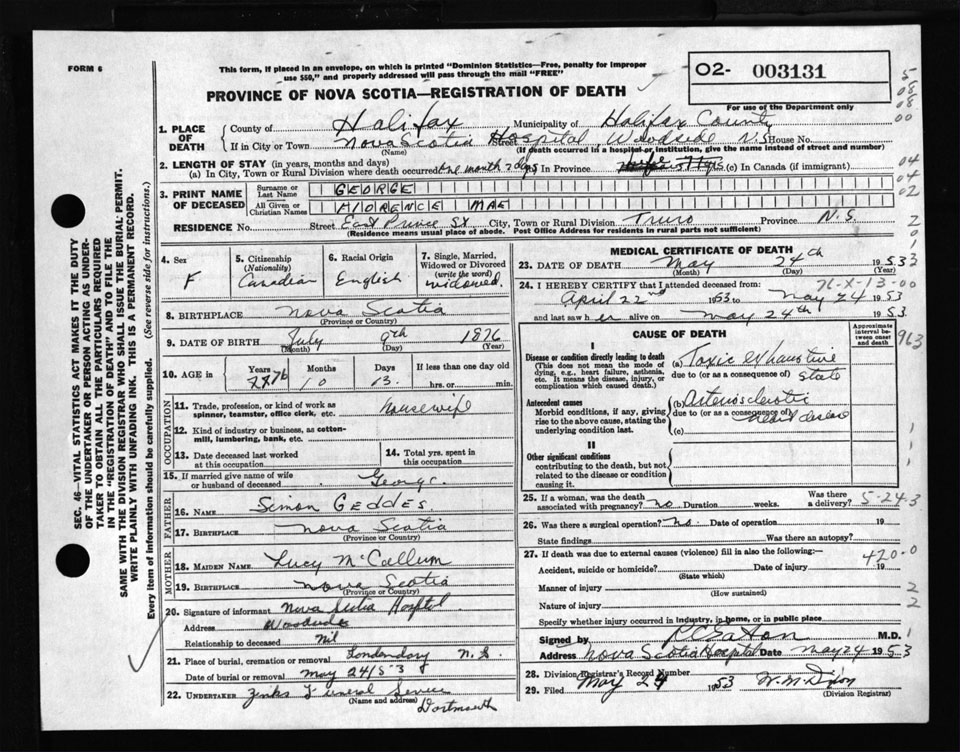 FORM 6
This form, if placed in an envelope, on which is printed "Dominion Statistics—Free, penalty for improper
use $50," and properly addressed will pass through the mail "FREE"
02- 003131
For use of the Department only
PROVINCE OF NOVA SCOTIA—REGISTRATION OF DEATH
1. PLACE OF DEATH
County of Halifax Municipality of Halifax County
If in City or Town Nova Scotia Street Hospital, Woodside N.S. House No.
(Name) (If death occurred in a hospital or institution, give the name instead of street and number)
2. LENGTH OF STAY (in years, months and days)
(a) In City, Town or Rural Division where death occurred one month 2 days (b) In Province (c) In Canada (if immigrant)
3. PRINT NAME OF DECEASED
Surname or Last Name GEORGE
All Given or Christian Names FlORENCE MAE
RESIDENCE No. Street East Prince St City, Town or Rural Division Truro Province N.S.
(Residence means usual place of abode. Post Office Address for residents in rural parts not sufficient)
4. Sex F
5. Citizenship (Nationality) Canadian
6. Racial Origin English
7. Single, Married, Widowed or Divorced (write the word) widowed
8. BIRTHPLACE Nova Scotia
(Province or Country)
9. DATE OF BIRTH July 9th 1876
(Month) (Day) (Year)
10. AGE in Years 76 Months 10 Days 13 If less than one day old
hrs. or min.
OCCUPATION
11. Trade, profession, or kind of work as spinner, teamster, office clerk, etc. housewife
12. Kind of industry or business, as cotton-mill, lumbering, bank, etc.
13. Date deceased last worked at this occupation
14. Total yrs. spent in this occupation
15. If married give name of wife or husband of deceased George
FATHER
16. NAME Simon Geddes
17. BIRTHPLACE Nova Scotia
(Province or Country)
MOTHER
18. MAIDEN NAME Lucy McCallum
19. BIRTHPLACE Nova Scotia
(Province or Country)
20. Signature of informant Nova Scotia Hospital
Address Woodside
Relationship to deceased Nil
21. Place of burial, cremation or removal Londonderry N.S.
Date of burial or removal May 24/53
22. UNDERTAKER Zinks Funeral Service
(Name and address) Dartmouth
MEDICAL CERTIFICATE OF DEATH
23. DATE OF DEATH May 24th 1953
(Month) (Day) (Year)
76-X-13-00
24. I HEREBY CERTIFY that I attended deceased from
April 22nd 1953 to May 24 1953
and last saw her alive on May 24th 1953
CAUSE OF DEATH
Approximate interval between onset and death
963
I
Disease or condition directly leading to death
(This does not mean the mode of dying, e.g., heart failure, asthenia, etc. It means the disease, injury, or complication which caused death.)
(a) Toxic exhaustive
due to (or as a consequence of) state
Antecedent causes
Morbid conditions, if any, giving rise to the above cause, stating the underlying condition last.
(b) Arteriosclerotic
due to (or as a consequence of) heart disease
(c)
II
Other significant conditions
contributing to the death, but not related to the disease or condition causing it.
25. If a woman, was the death associated with pregnancy? no Duration weeks. Was there a delivery?
5-24-3
26. Was there a surgical operation? no. Date of operation 19
State findings Was there an autopsy?
27. If death was due to external causes (violence) fill in also the following:—
420-0
Accident, suicide or homicide? Date of injury 19
(State which)
Manner of injury
(How sustained)
Nature of injury
Specify whether injury occurred in industry, in home, or in public place
Signed by M.D.
Address Nova Scotia Hospital Date May 24 1953
28. Division Registrar's Record Number
29. Filed May 24 1953
(Division Registrar)
SEC. 46—VITAL STATISTICS ACT MAKES IT THE DUTY
OF THE UNDERTAKER OR PERSON ACTING AS UNDER-
TAKER TO OBTAIN ALL THE PARTICULARS REQUIRED
IN THE "REGISTRATION OF DEATH" AND TO FILE THE
SAME WITH THE DIVISION REGISTRAR WHO SHALL ISSUE THE BURIAL PERMIT.
WRITE PLAINLY WITH UNFADING INK. THIS IS A PERMANENT RECORD.
Every item of information should be carefully supplied. (See reverse side for instructions.)